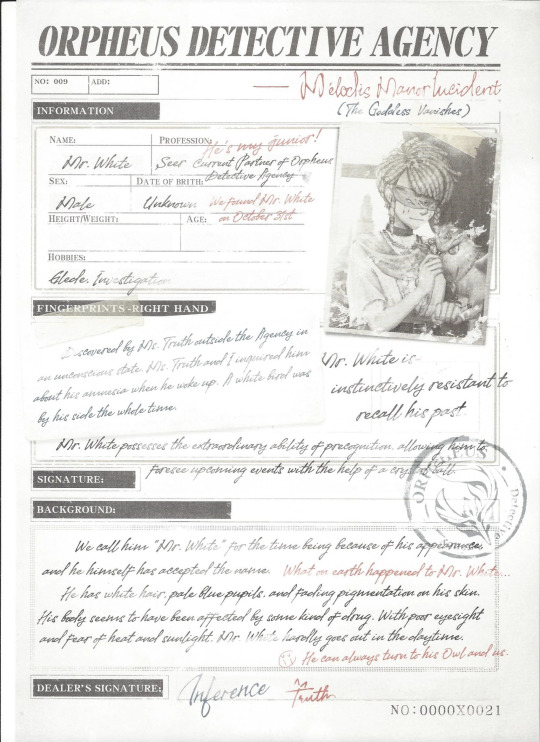 ORPHEUS DETECTIVE AGENCY
NO: 009
ADD:
Mélodis Manor Incident
(The Goddess Vanishes)
INFORMATION
NAME:
Mr. White
PROFESSION:
He's my junior!
Seer Current Partner of Orpheus
Detective Agency
SEX:
Male
DATE OF BRITH:
Unknown
We found Mr. White
on October 31st
HEIGHT/WEIGHT:
AGE:
HOBBIES:
Glede. Investigation
FINGERPRINTS-RIGHT HAND
Discovered by Ms. Truth outside the Agency in
an unconscious state. Ms. Truth and I inquired him
about his amnesia when he woke up. A white bird was
by his side the whole time.
Mr. White is
instinctively resistant to
recall his past.
Mr. White possesses the extraordinary ability of precognition, allowing him to
foresee upcoming events with the help of a crystal ball.
SIGNATURE:
ORPHEUS
Detective
BACKGROUND:
We call him "Mr. White" for the time being because of his appearance,
and he himself has accepted the name. What on earth happened to Mr. White...
He has white hair, pale blue pupils, and fading pigmentation on his skin.
His body seems to have been affected by some kind of drug. With poor eyesight
and fear of heat and sunlight, Mr. White hardly goes out in the daytime.
He can always turn to his Owl and us.
DEALER'S SIGNATURE:
Inference
Truth
NO:0000X0021